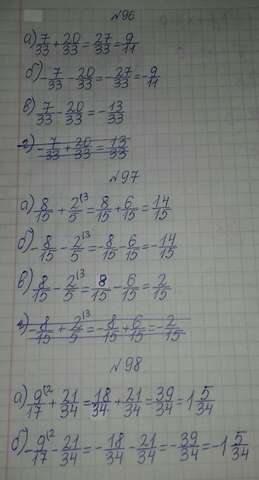 №96
а) 7/33 + 20/33 = 27/33 = 9/11
б) -7/33 - 20/33 = -27/33 = -9/11
в) 7/33 - 20/33 = -13/33
г) -7/33 + 20/33 = 13/33
№97
а) 8/15 + 2/5 (3 = 8/15 + 6/15 = 14/15
б) -8/15 - 2/5 (3 = -8/15 - 6/15 = -14/15
в) 8/15 - 2/5 (3 = 8/15 - 6/15 = 2/15
г) -8/15 + 2/5 (3 = -8/15 + 6/15 = -2/15
№98
а) 9/17 (2 + 21/34 = 18/34 + 21/34 = 39/34 = 1 5/34
б) -9/17 (2 - 21/34 = -18/34 - 21/34 = -39/34 = -1 5/34